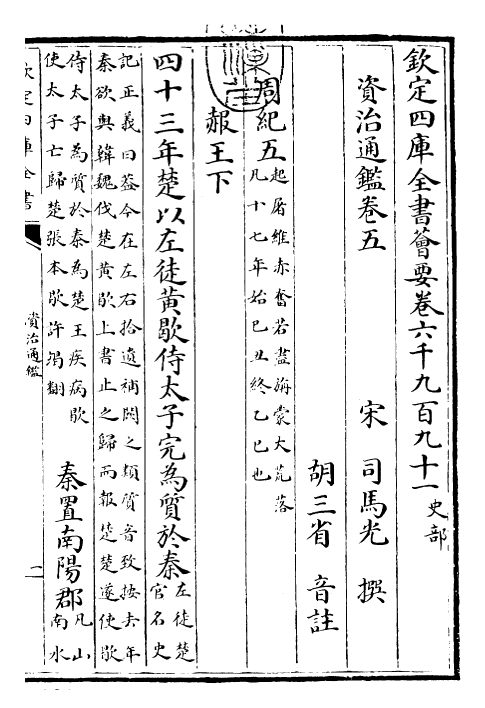 欽定四庫全書薈要卷六千九百九十一 史部
資治通鑑卷五
宋 司馬光 撰
胡三省 音註
周紀五
起屠維赤奮若盡旃蒙大荒落
凡十七年始己丑終乙巳也
赧王下
四十三年楚以左徒黃歇侍太子完為質於秦
左徒楚
官名史
記正義曰葢今在左右拾遺補闕之類質音致按去年
秦欲與韓魏伐楚黃歇上書止之歸而報楚楚遂使歇
侍太子為質於秦為楚王疾病歇
使太子亡歸楚張本歇許竭翻
秦置南陽郡
凡山
南水
欽定四庫全書
資治通鑑
一